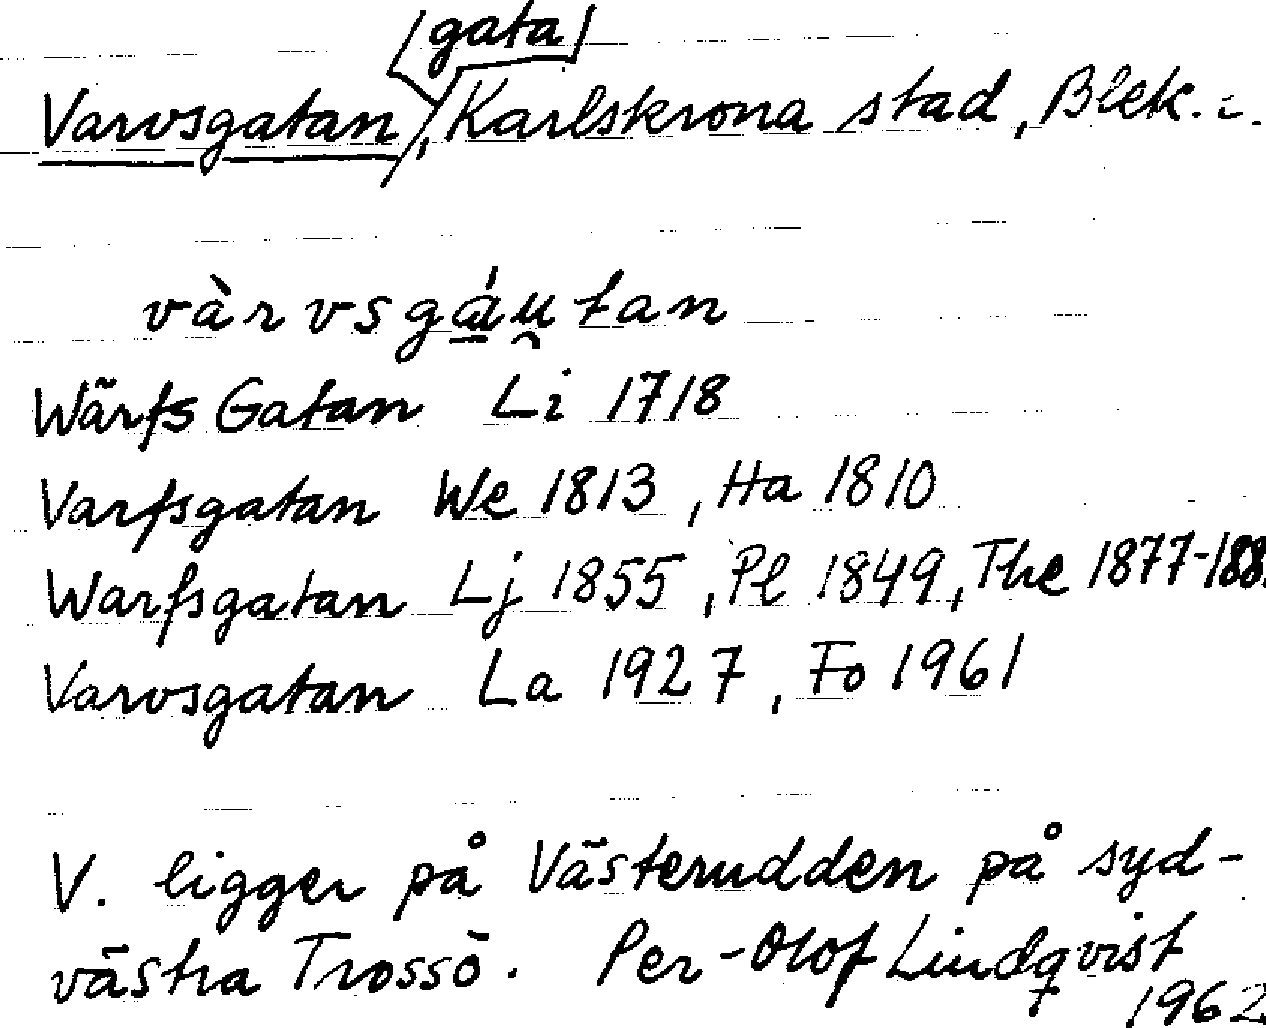 [gata]
Varvsgatan, Karlskrona stad, Blek. l.
vàrvsgáu̯tan
Wärfs Gatan Li 1718
Varfsgatan We 1813, Ha 1810
Warfsgatan Lj 1855, Pl 1849, The 1877-188
Varvsgatan La 1927, Fo 1961
V. ligger på Västerudden på syd-
västra Trossö. Per-Olof Lindqvist
1962